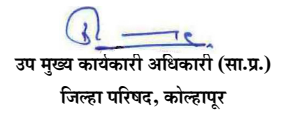 उप मुख्य कार्यकारी अधिकारी (सा.प्र.)
जिल्हा परिषद, कोल्हापूर